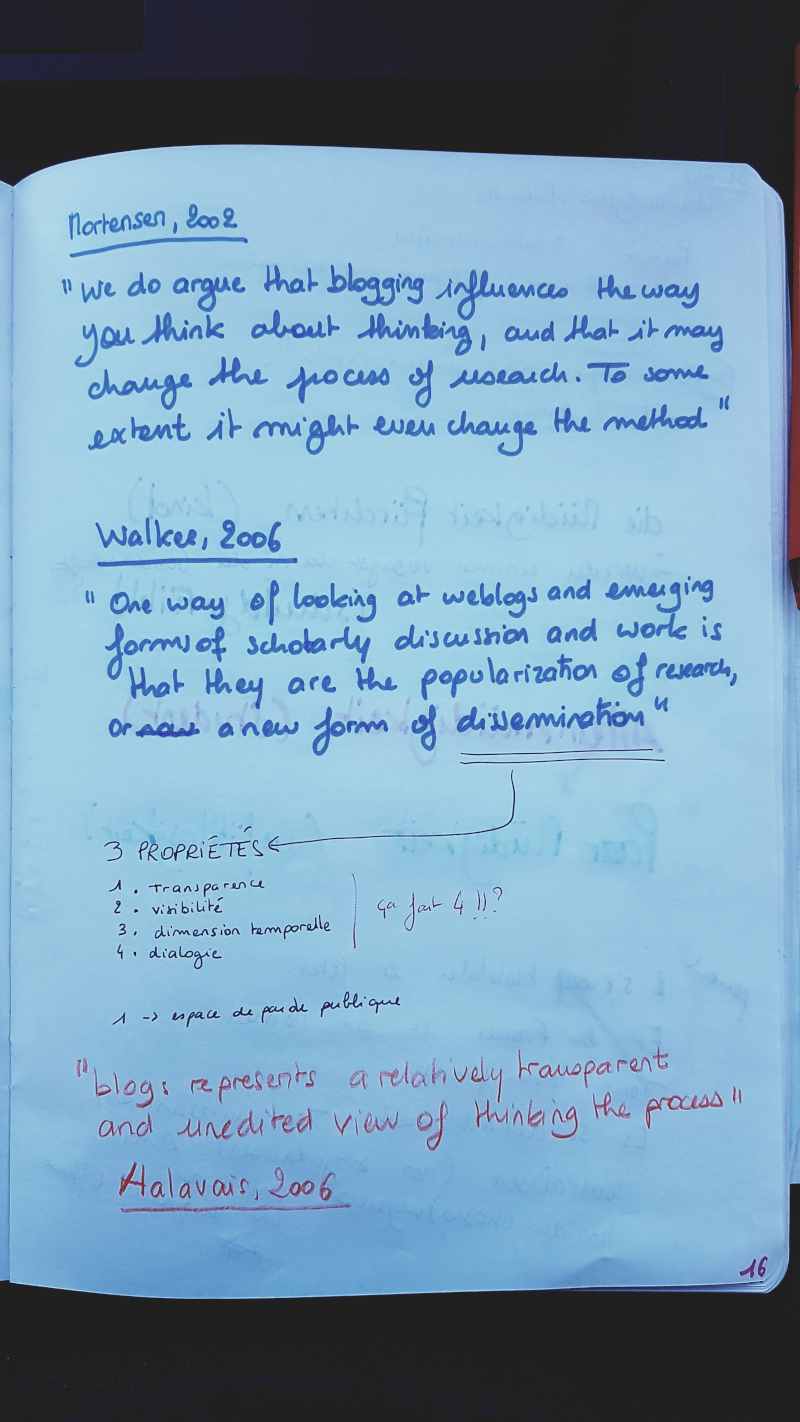 Mortensen, 2002
"We do argue that blogging influences the way
you think about thinking, and that it may
change the process of research. To some
extent it might even change the method"
Walker, 2006
"One way of looking at weblogs and emerging
forms of scholarly discussion and work is
that they are the popularization of research,
or a new form of dissemination"
3 PROPRIÉTÉS
1. transparence
2. visibilité
3. dimension temporelle
4. dialogie
ça fait 4 !!?
1 -> espace de parole publique
"blogs represents a relatively transparent
and unedited view of thinking the process"
Halavais, 2006
16